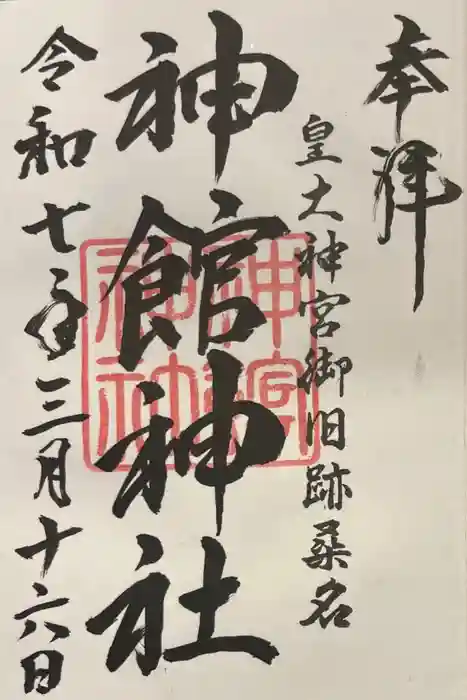 奉拝
皇大神宮御旧跡桑名
神館神社
神館神社
令和七年三月十六日